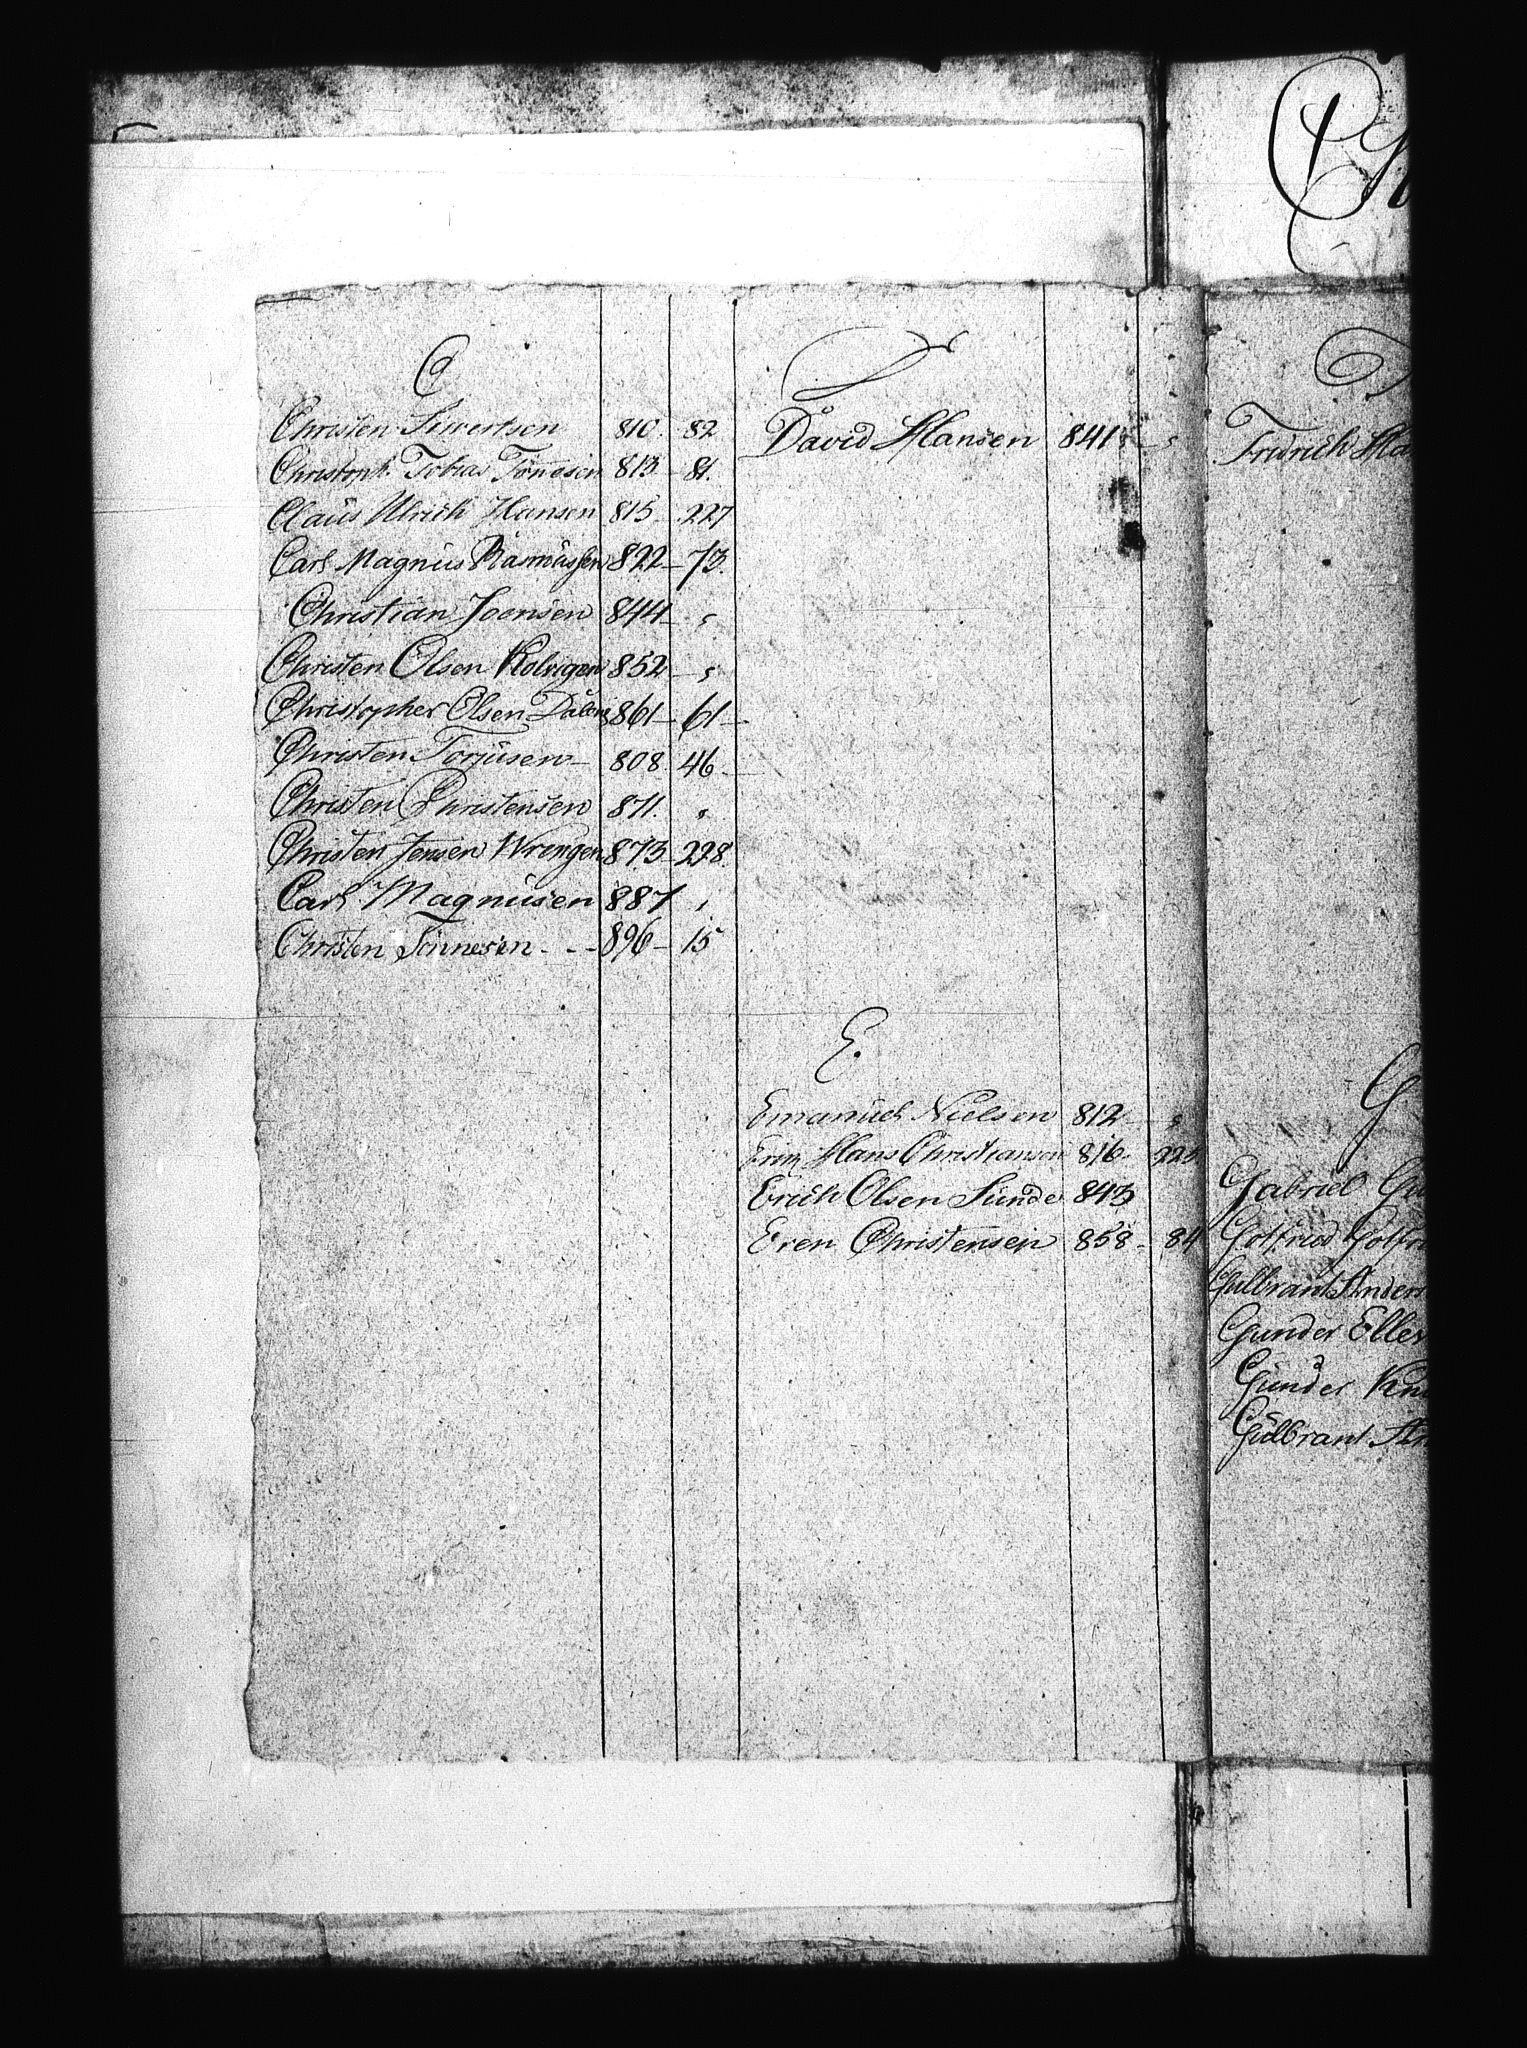 C
Christen Siwertsen 810. 82
Christoph. Tobias Tönesen 813 - 81.
Claus Ulrich Hansen 815 - 227
Carl Magnus Rasmussen 822 - 73.
Christian Joensen 844 - "
Christen Olsen Kolvigen 852 - "
Christopher Olsen 861 - 61 -
Christen Torjusen - 808 46 -
Christen Christensen 871. "
Christen Jensen Wrengen 873 - 228
Carl Magnusen 887 "
Christen Tönnesen - - - 896 - 15
D
David Hansen 841 - "
E.
Emanuel Nielsen 812 - "
Hans Christiansen 816 - 223
Erich Olsen Sunde 843
Even Christensen 858 - 84
Fridrich
G
Gabriel
Gotfried
Gulbrant
Gunder
Gunder
Gulbrant